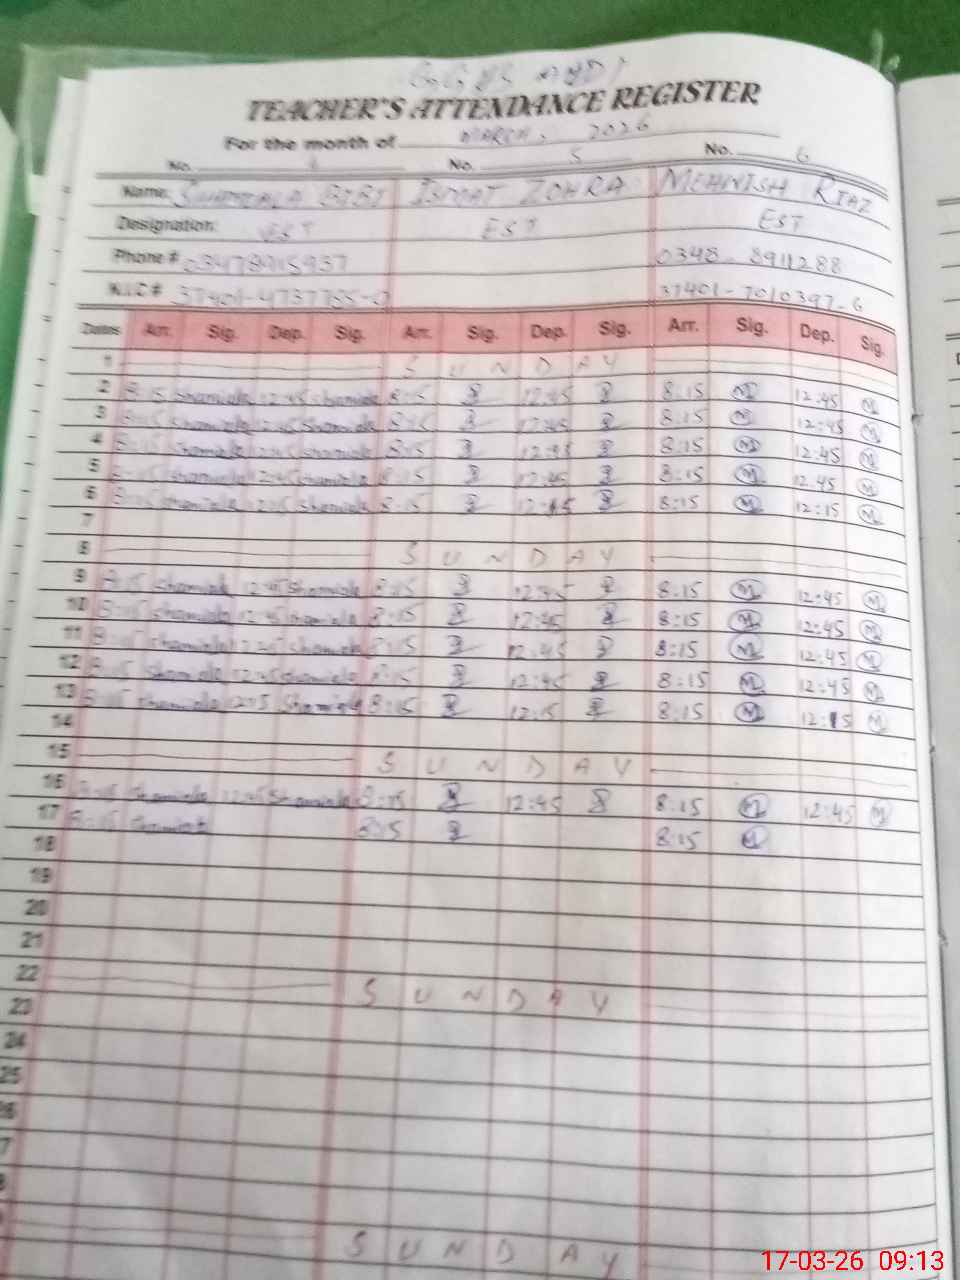 TEACHER'S ATTENDANCE REGISTER
For the month of MARCH, 2026
No. 4 No. 5 No. 6
Name: SHAMIALA BIBI ISMAT ZOHRA MEHWISH RIAZ
Designation: EST EST EST
Phone # 03478915937 0348-8911288
N.I.C # 37401-4737755-0 37401-7010397-6
Dates Arr. Sig. Dep. Sig. Arr. Sig. Dep. Sig. Arr. Sig. Dep. Sig.
1 SUNDAY
2 8:15 Shamiala 12:45 Shamiala 8:15 12:45 8:15 M 12:45 M
3 8:15 Shamiala 12:45 Shamiala 8:15 12:45 8:15 M 12:45 M
4 8:15 Shamiala 12:45 Shamiala 8:15 12:45 8:15 M 12:45 M
5 8:15 Shamiala 12:45 Shamiala 8:15 12:45 8:15 M 12:45 M
6 8:15 Shamiala 12:15 Shamiala 8:15 12:15 8:15 M 12:15 M
7
8 SUNDAY
9 8:15 Shamiala 12:45 Shamiala 8:15 12:45 8:15 M 12:45 M
10 8:15 Shamiala 12:45 Shamiala 8:15 12:45 8:15 M 12:45 M
11 8:15 Shamiala 12:45 Shamiala 8:15 12:45 8:15 M 12:45 M
12 8:15 Shamiala 12:45 Shamiala 8:15 12:45 8:15 M 12:45 M
13 8:15 Shamiala 12:15 Shamiala 8:15 12:15 8:15 M 12:15 M
14
15 SUNDAY
16 8:15 Shamiala 12:45 Shamiala 8:15 12:45 8:15 M 12:45 M
17 8:15 Shamiala 8:15 8:15 M
18
19
20
21
22 SUNDAY
23
24
25
26
7
SUNDAY
17-03-26 09:13